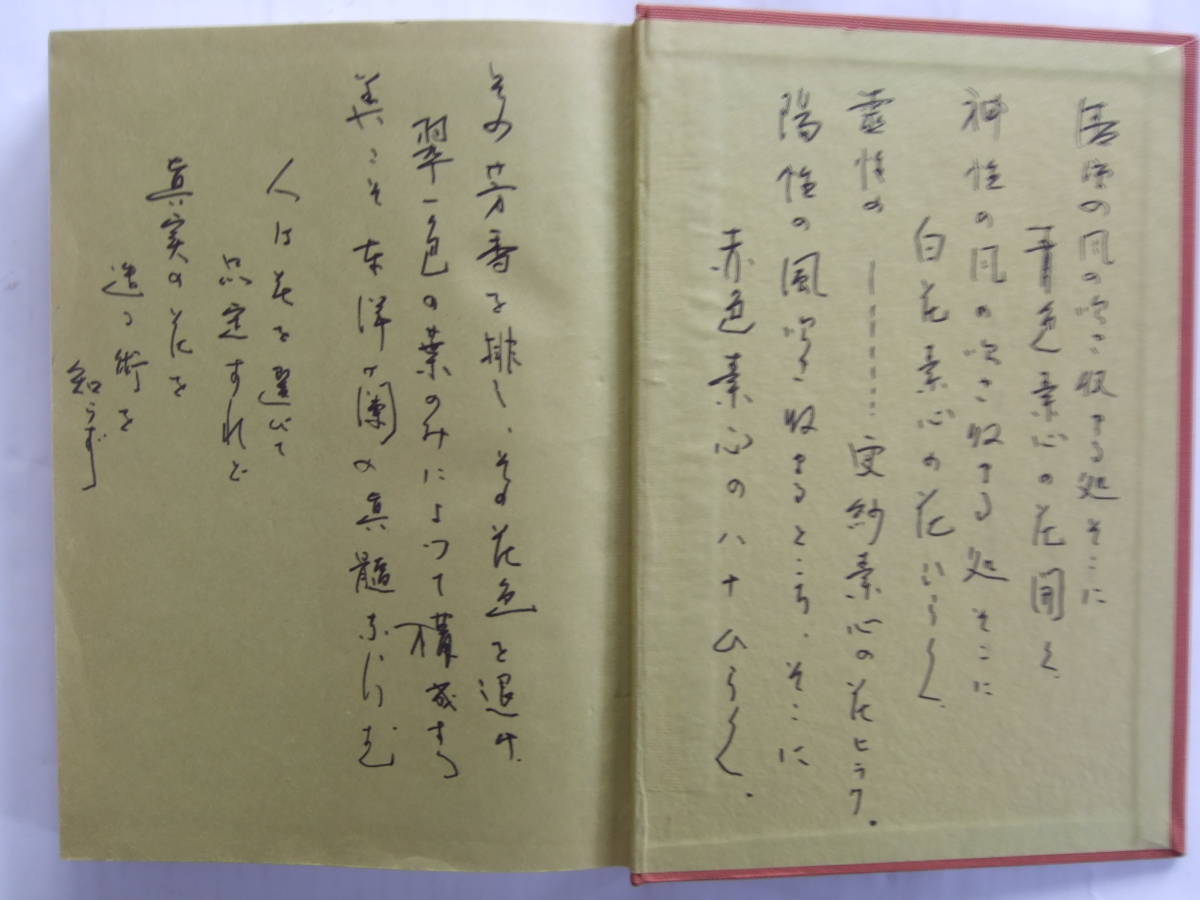 の風の吹き収まる処そこに
青色素心の花開く
神性の風の吹き収まる処そこに
白花素心の花ひらく
霊性の 更紗素心の花ヒラク。
陽性の風吹き収まるところ、そこに
赤色素心のハナひらく。
その芳香を排し、その花色を退け
翠一色の葉のみによって構成す
美こそ東洋蘭の真髄
人は花を選びて
品定すれど
真実の花を
造る術を
知らず